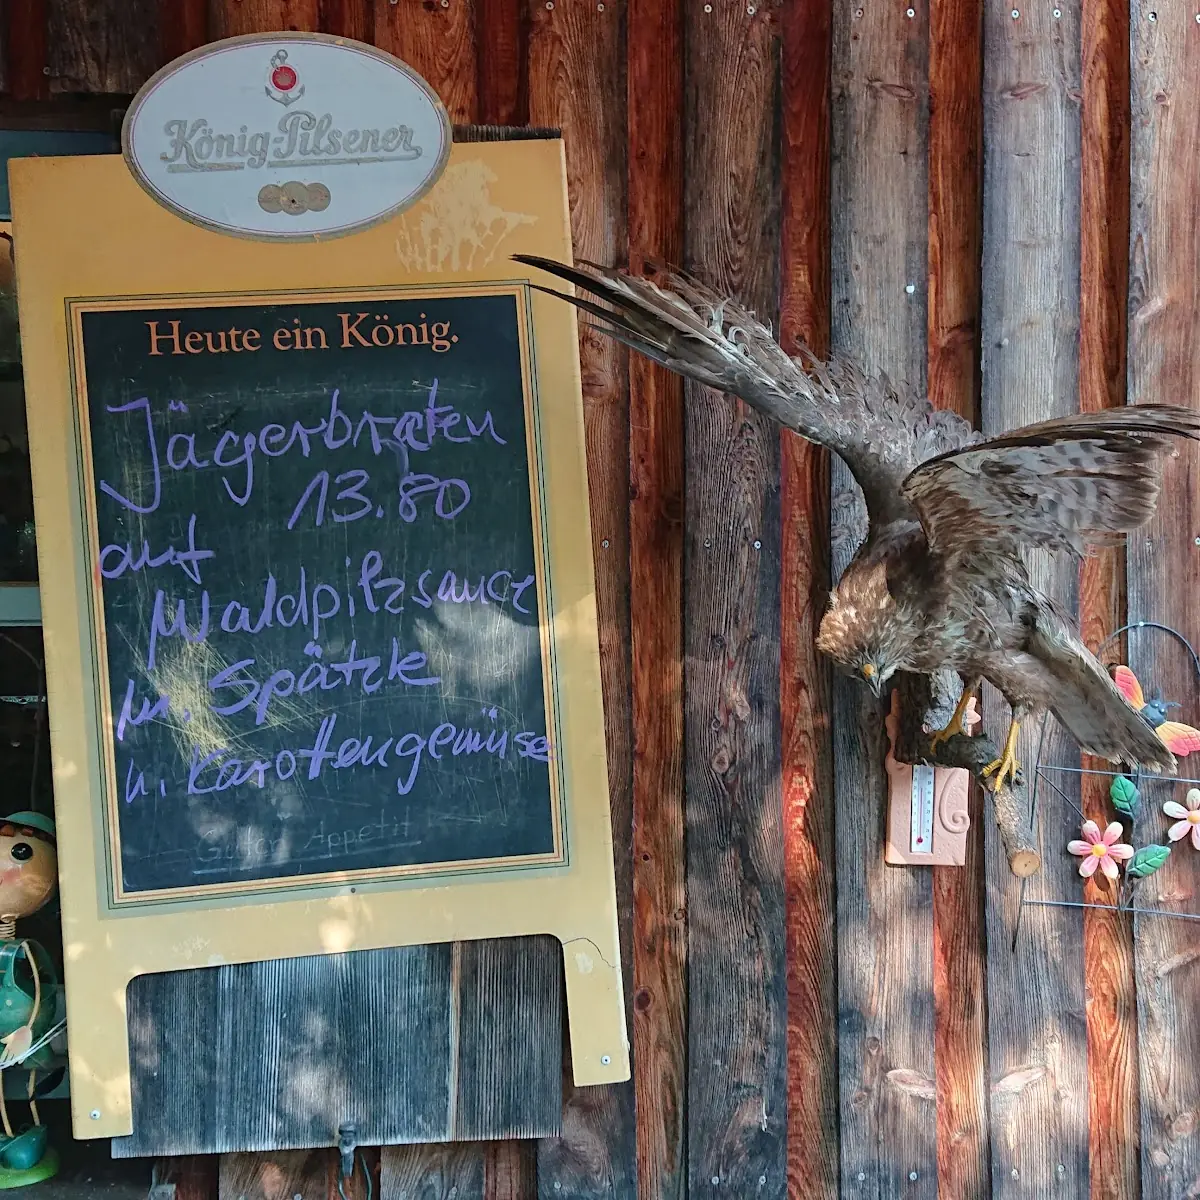 König-Pilsener
Heute ein König.
Jägerbraten
13.80
auf
Waldpilzsauce
m. Spätzle
u. Karottengemüse
Guten Appetit